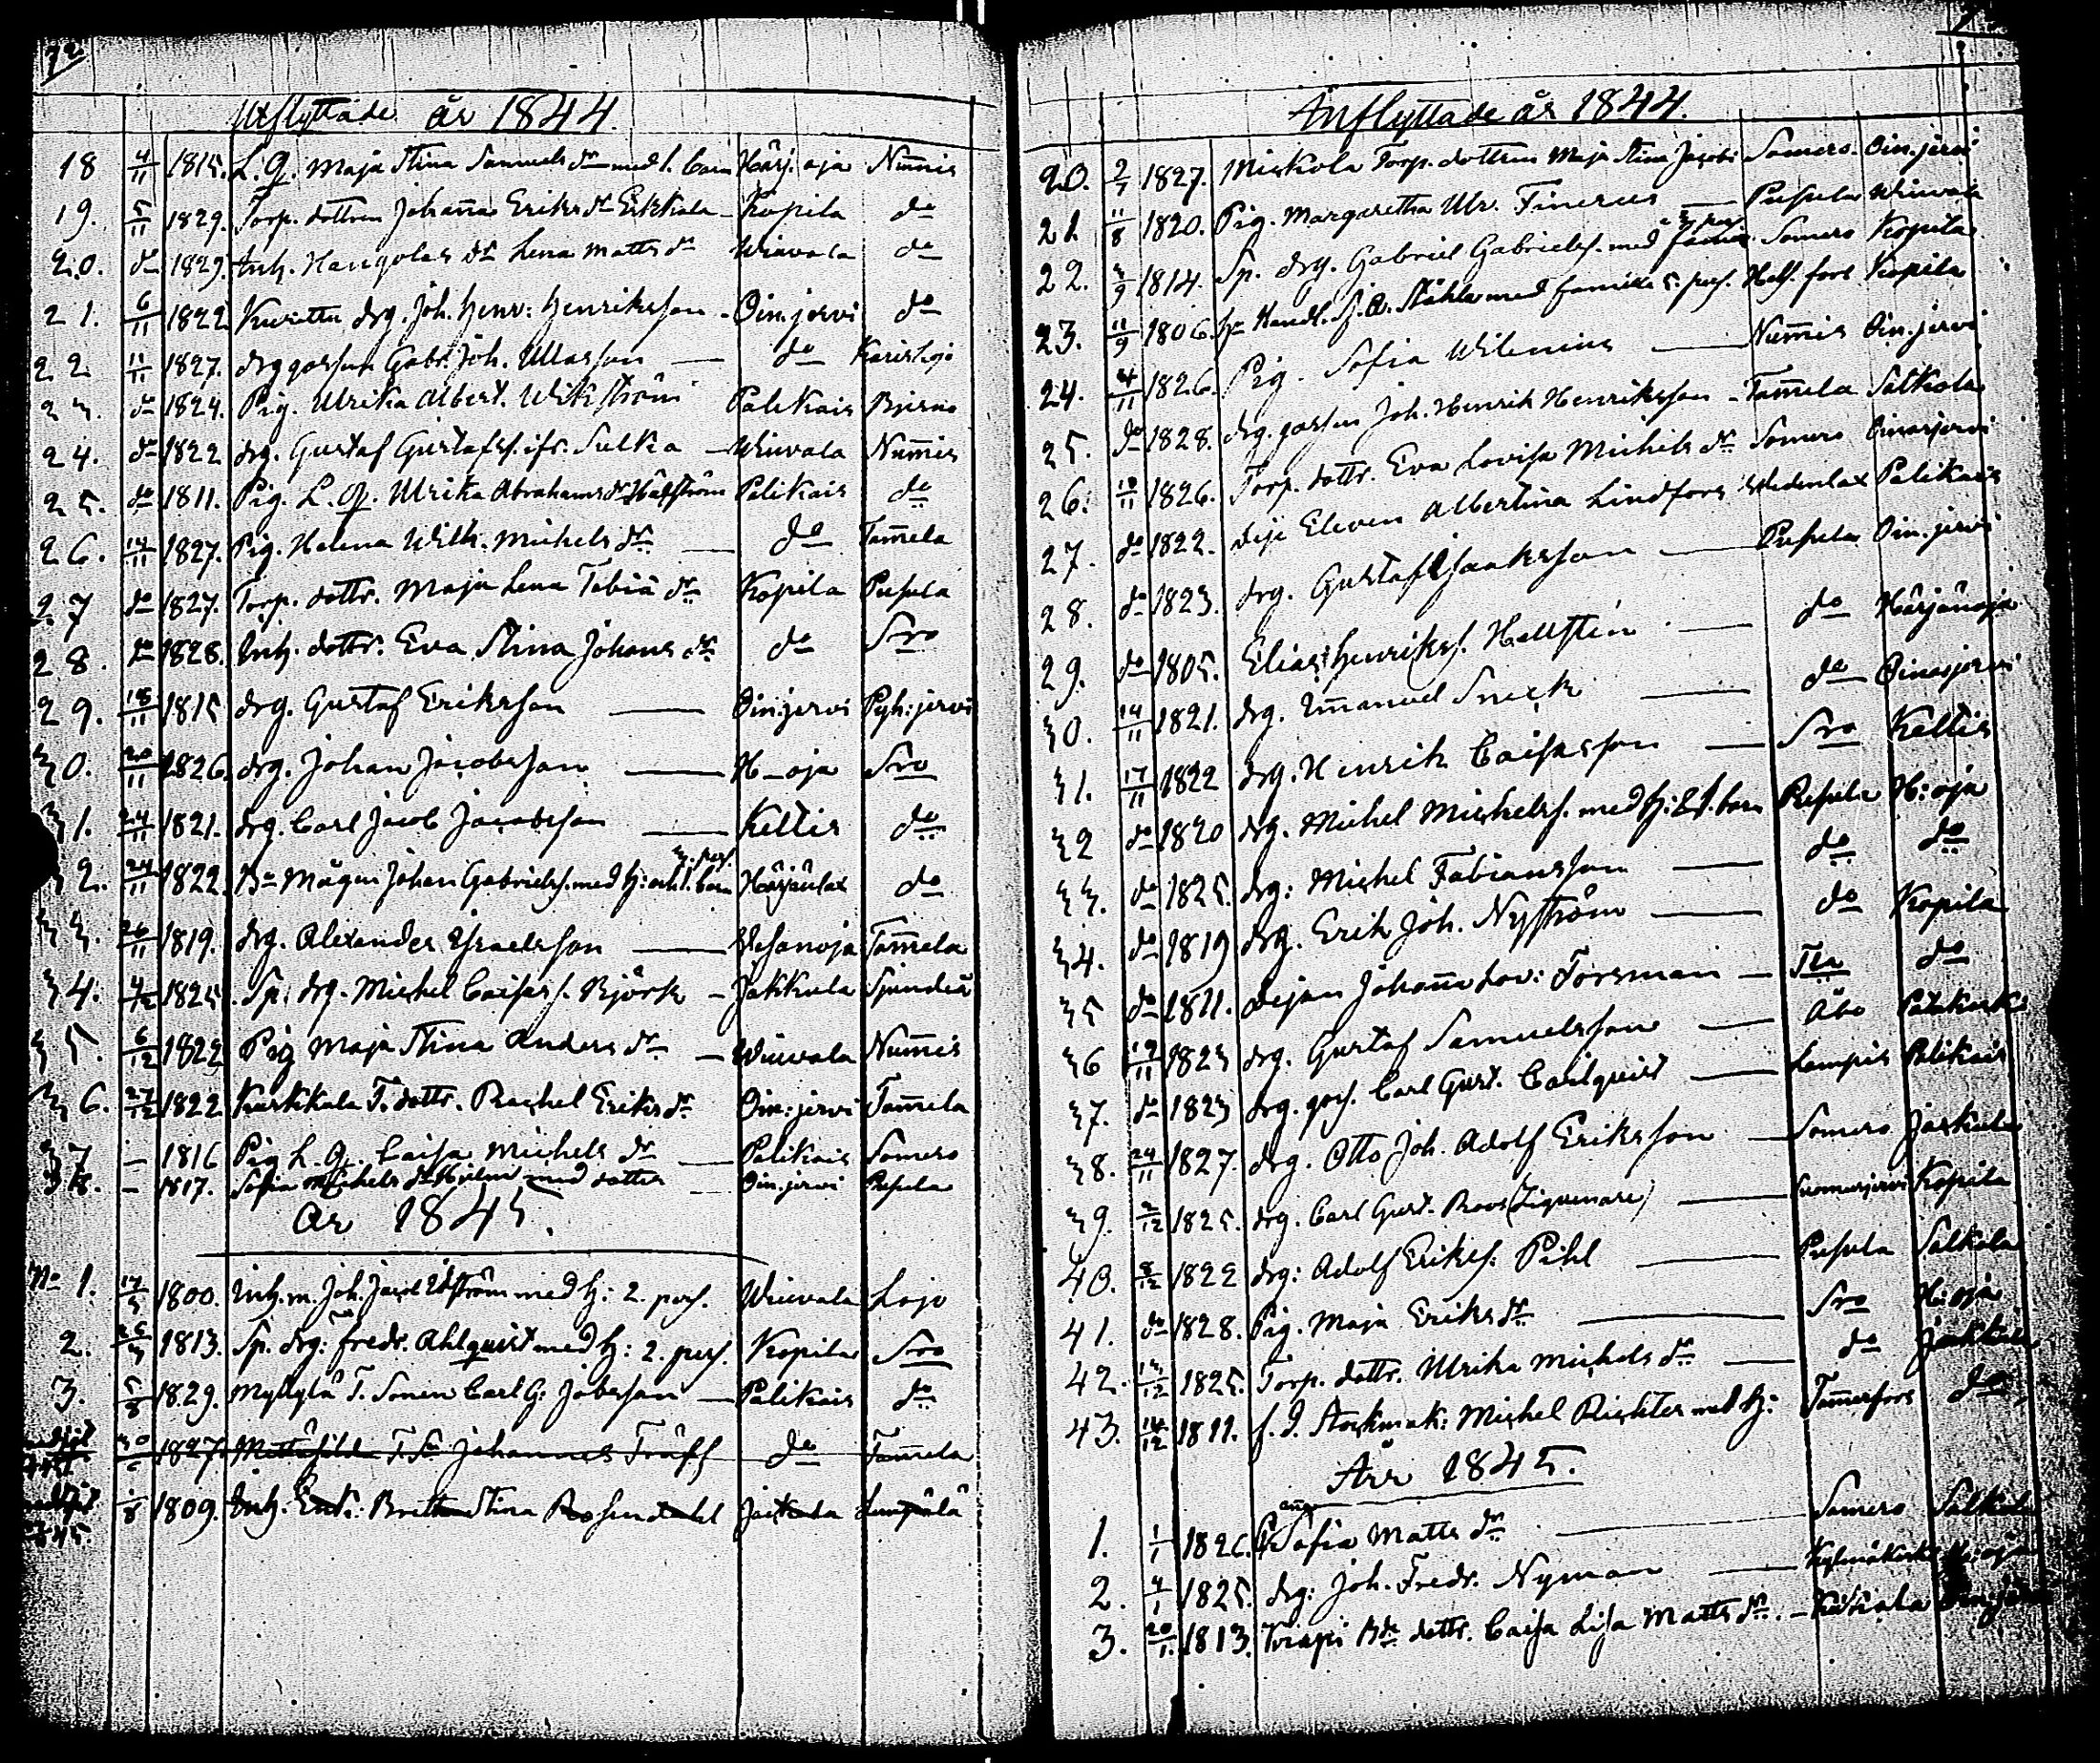 72
Utflyttade år 1844.
18 4/11 1815. L. Q. Maja Stina Samuels dr med 1. barn Härj. oja Nummis
19. 5/11 1829. Torp. dottren Johanna Eriks dr Erkkala Kopila do
20. do 1829. Inh. Hangolas dr Lena Matts dr Wiuvala do
21. 6/11 1822 Kurettu drg. Joh. Henr: Henriksson - Oin. jervi do
22 11/11 1827. drg gossen Gabr. Joh. Ullasson — do Karislojo
23. do 1824. Pig. Ulrika Albert. Wikström Palikais Bjerno
24. do 1822 drg. Gustaf Gustafss. ifr. Sulka — Wiuvala Nummis
25. do 1811. Pig. L. Q. Ulrika Abrahams dr Hällström Palikais do
26. 14/11 1827. Pig. Helena Wilh. Michels dr — do Tammela
27 do 1827. Torp. dottr. Maja Lena Tobiä dr Kopila Pusula
28. do 1828. Inh. dottr. Eva Stina Johans dr do Sro
29. 18/11 1815 drg. Gustaf Eriksson — Oin:jervi Pyh:jervi
30. 20/11 1826. drg. Johan Jacobsson — H—oja Sro
31. 24/11 1821. drg. Carl Jacob Jacobsson — Keltis do
32. 24/11 1822. Bde Mågen Johan Gabrielss. med h: och 1. barn 3. pers. Härjänlax do
33. 26/11 1819. drg. Alexander Ysraelsson — Wesanoja Tammela
34. 4/12 1825. Sp: drg. Michel Caisass. Björk - Jakkula Sjundeå
35. 6/12 1822 Pig Maja Stina Anders dr — Wiuvala Nummis
36. 27/12 1822 Kurkkala T. dottr. Rachel Eriks dr Oin:jervi Tammela
37 — 1816 Pig L. Q. Caisa Michels dr — Palikais Somero
38. — 1817. Sofia Michels dr Hjelm med dotter — Oin.jervi Pusula
År 1845.
No 1. 17/3 1800. Inh. m. Joh. Jacob Edström med h: 2. pers. Wiuvala Lojo
2. 26/3 1813. Sp. drg: Fredr. Ahlquist med h: 2. pers. Kopila Sro
3. 5/8 1829. Myllylä T. Sonen Carl G: Jobsson — Palikais do
1827. T. Sn Johannes Träff do Tammela
1809. Inh: Enk: Britta Stina Rosendahl Jackula Lempälä
Inflyttade år 1844.
20. 2/1 1827. Mickola Torp. dottren Maja Stina Jacobs Somero Oin.jervi
21. 11/8 1820. Pig. Margaretha Ulr. Finerus — Pusula Wiuvala
22. 3/9 1814. Sp. drg. Gabriel Gabrielss. med familie 3 pers Somero Kopila
23. 11/9 1806. Hr Handl. Hj. A. Ståhle med familie 5. pers. Hels. fors Kopila
24. 4/11 1826. Pig. Sofia Wilenius — Nummis Oin.jervi
25. do 1828. drg. gossen Joh. Henrik Henriksson - Tammela Salkola
26. 10/11 1826. Torp. dottr. Eva Lovisa Michels dr Somero Oinasjervi
27. do 1822. Deje Eleven Albertina Lindfors Wedenlax Palikais
28. do 1823. drg. Gustaf Isaaksson — Pusula Oin.jervi
29. do 1805. Elias Henrikss. Hellsten — do Härjänoja
30. 14/11 1821. drg. Immanuel Sneck — do Oinasjervi
31. 17/11 1822 drg. Henrik Caisasson — Sro Keltis
32 do 1820 drg. Michel Michelss. med h: & 1. barn Pusula H:oja
33. do 1825. drg: Michel Fabiansson — do do
34. do 1819 drg. Erik Joh. Nyström — do Kopila
35 do 1811. Dejan Johanna Lov: Forsman — Tla do
36 19/11 1823 drg. Gustaf Samuelsson — Åbo Palikais
37. do 1823 drg. goss. Carl Gust. Carlquist — Lampis Palikais
38. 24/11 1827. drg. Otto Joh. Adolf Eriksson — Somero Jackula
39. 2/12 1825. drg. Carl Gust. Roos (Ziguenare) — Suomusjervi Kopila
40. 8/12 1822 drg: Adolf Erikss. Pihl — Pusula Salkola
41. do 1828. Pig. Maja Eriks dr — Sro H:oja
42. 13/12 1825. Torp. dottr. Ulrika Michels dr — do Jackula
43. 14/12 1811. f. d. Stockmak: Michel Richter med h: Tammerfors do
År 1845.
1. 1/1 1826. Sofia Matts dr — Somero Salkola
2. 4/1 1825. drg: Joh. Fredr. Nyman — Kylmäkoski H:oja
3. 20/1. 1813. Bde dottr. Caisa Lisa Matts dr. —